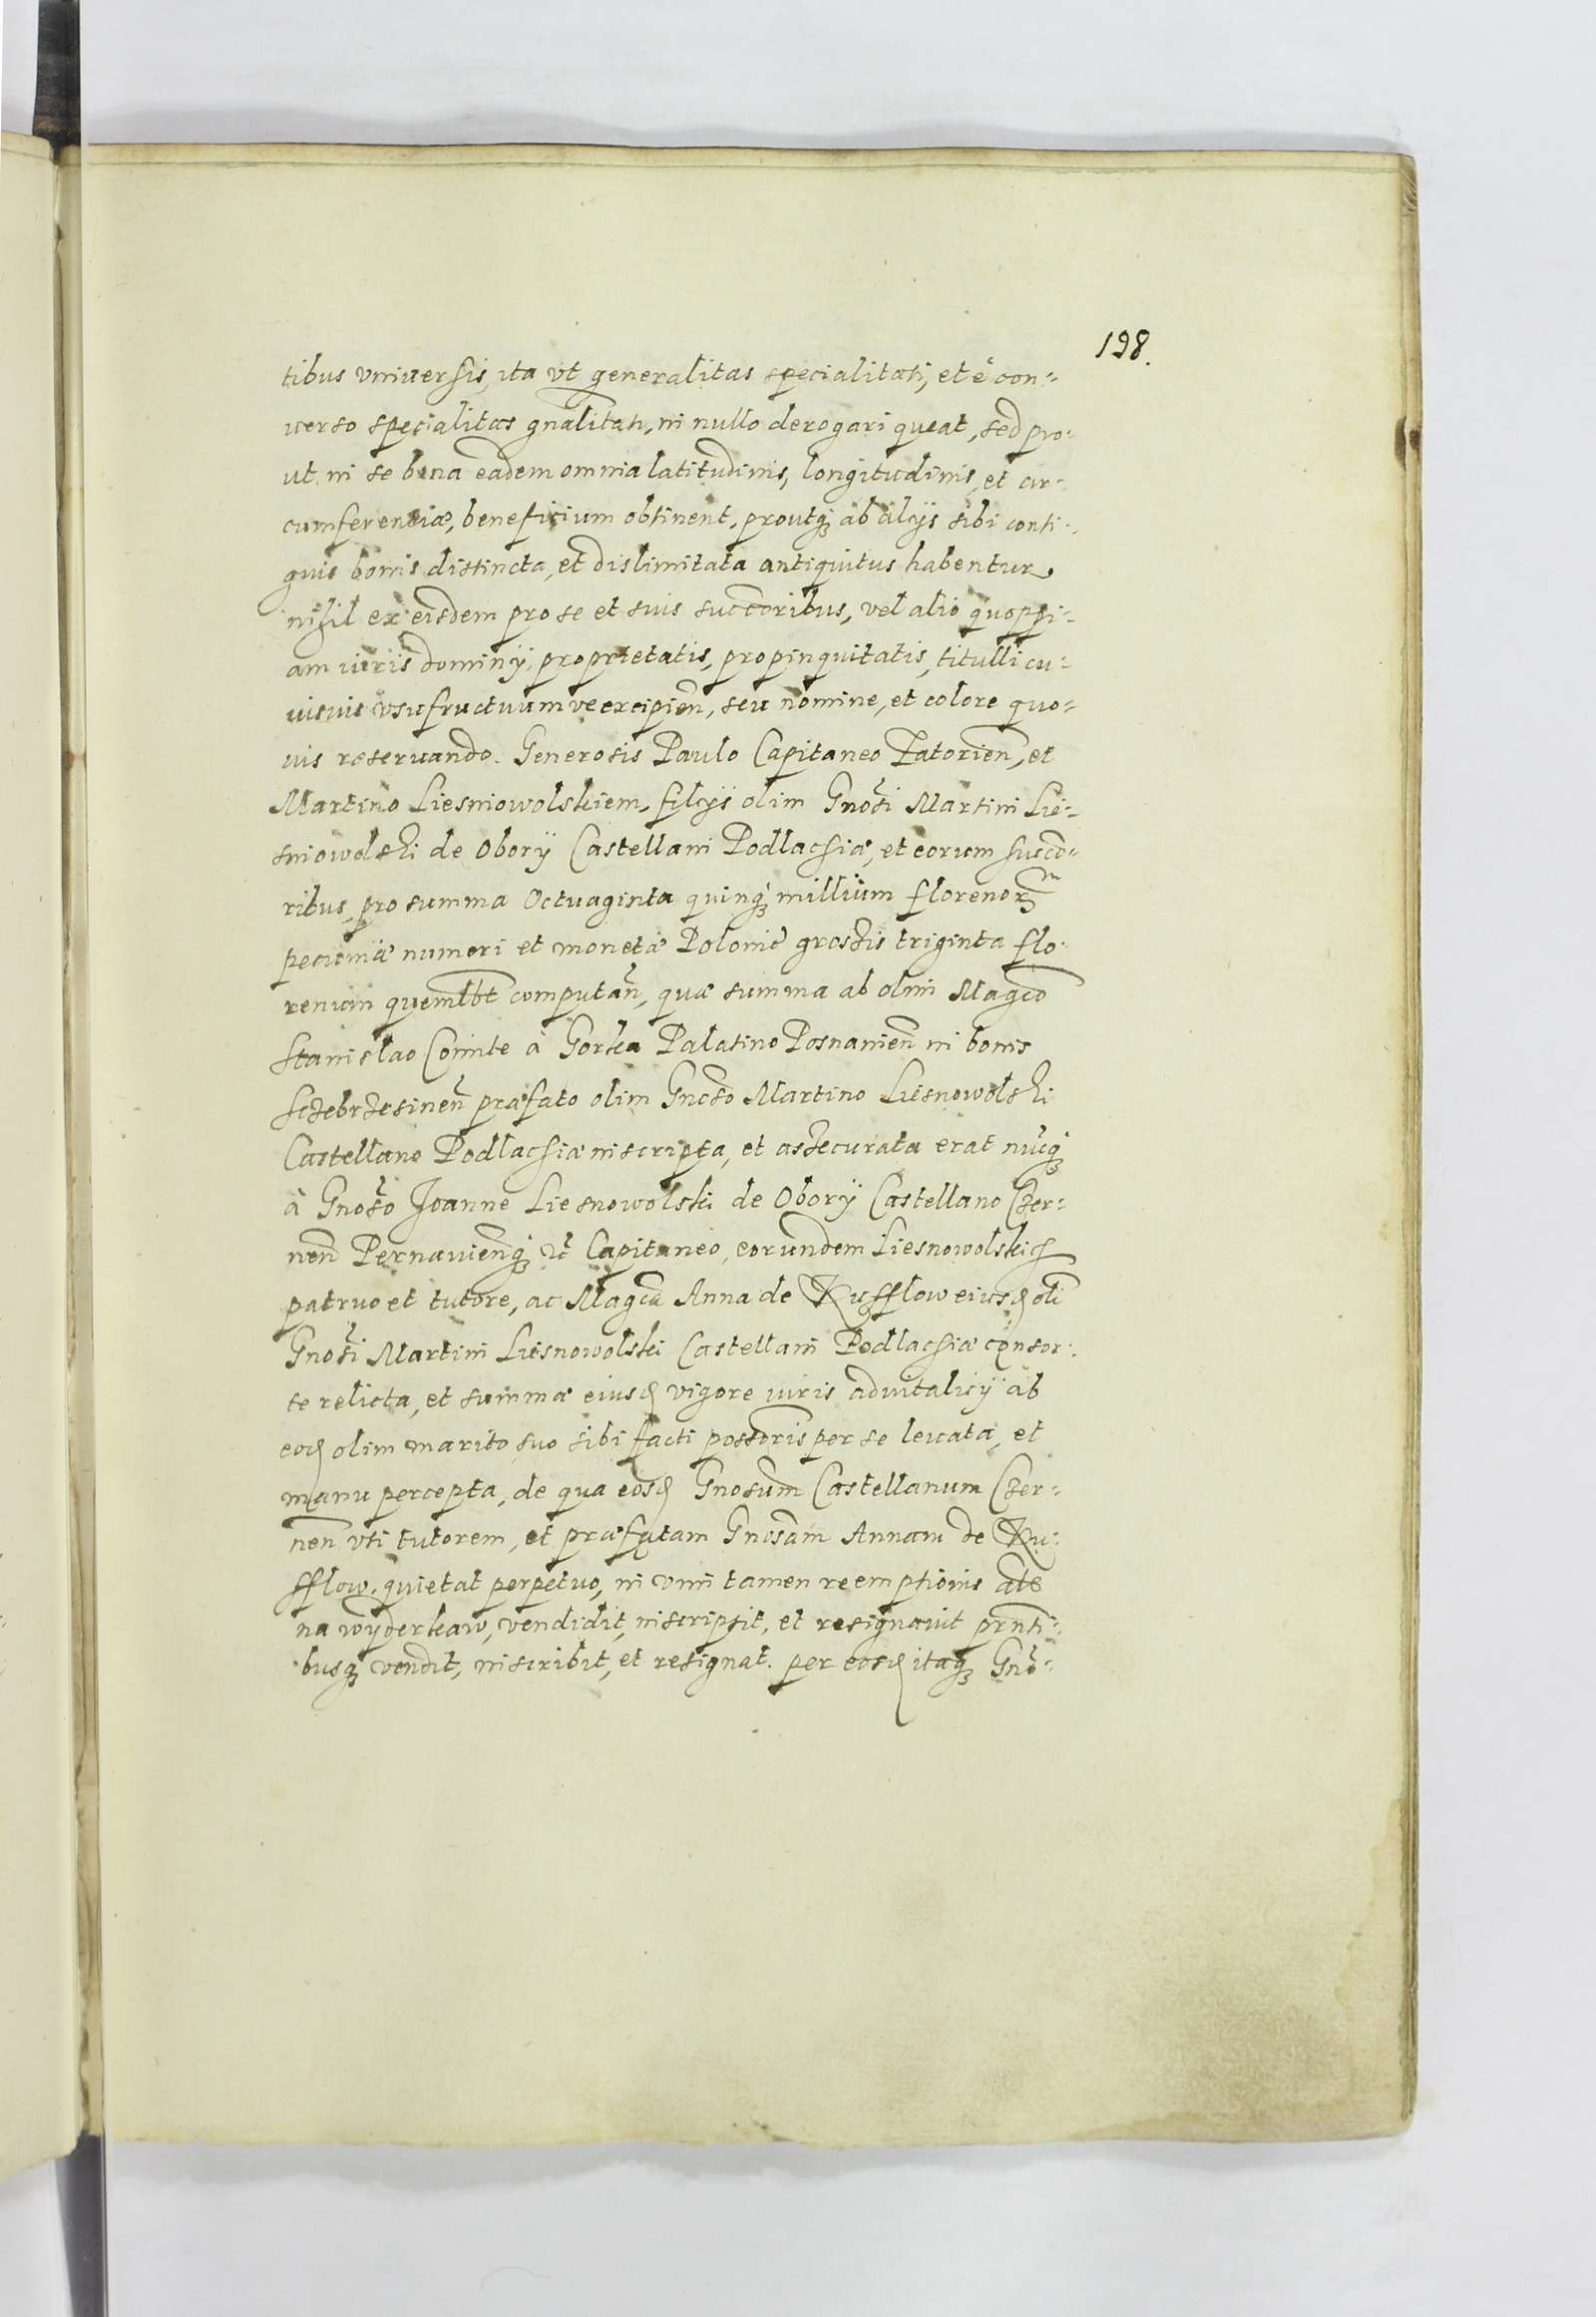 198.
tibus vniuersis, ita vt generalitas specialitati, et è con-
uerso specialitas gnalitati, in nullo derogari queat, sed pro-
ut in se bona eadem omnia latitudinis, longitudinis, et cir-
cumferentiæ, beneficium obtinent, proutq ab alijs sibi conti-
guis bonis distincta, et dislimitata antiquitus habentur,
nihil ex eisdem pro se et suis succoribus, vel alio quoppi-
am iuris dominij, proprietatis, propinquitatis, titulli cu-
uisuis vsufructuum ve excipien, seu nomine, et colore quo-
uis reseruando. Generosis Paulo Capitaneo Zatorien, et
Martino Liesniowolskiem, filijs olim Gnosi Martini Lie-
sniowolski de Obory Castellani Podlachiæ, et eorum succo-
ribus, pro summa Octuaginta quinq millium florenorum
pecuniæ numeri et monetæ Poloniæ grossis triginta flo-
renum quemlbt computan, quæ summa ab olim Magco
Stanislao Comite à Gorka Palatino Posnanien in bonis
Sczebrzesinen præfato olim Gnoso Martino Liesnowolski
Castellano Podlachiæ inscripta, et assecurata erat nucq
à Gnoso Joanne Liesnowolski de Obory Castellano Czer-
nen Pernauienq etc Capitaneo, eorundem Liesnowolskich
patruo et tutore, ac Magca Anna de Kufflow eiusd oli
Gnosi Martini Liesnowolski Castellani Podlachiæ consor-
te relicta, et summæ eiusd vigore iuris aduitalicij ab
eod olim marito suo sibi facti possoris per se leuata, et
manu percepta, de qua eosd Gnosum Castellanum Czer-
nen vti tutorem, et præfatam Gnosam Annam de Ku-
fflow, quietat perpetuo, in vim tamen reemptionis als
na wyderkaw, vendidit, inscripsit, et resignauit prnti-
busq vendit, inscribit, et resignat. per eosd itaq Gno-